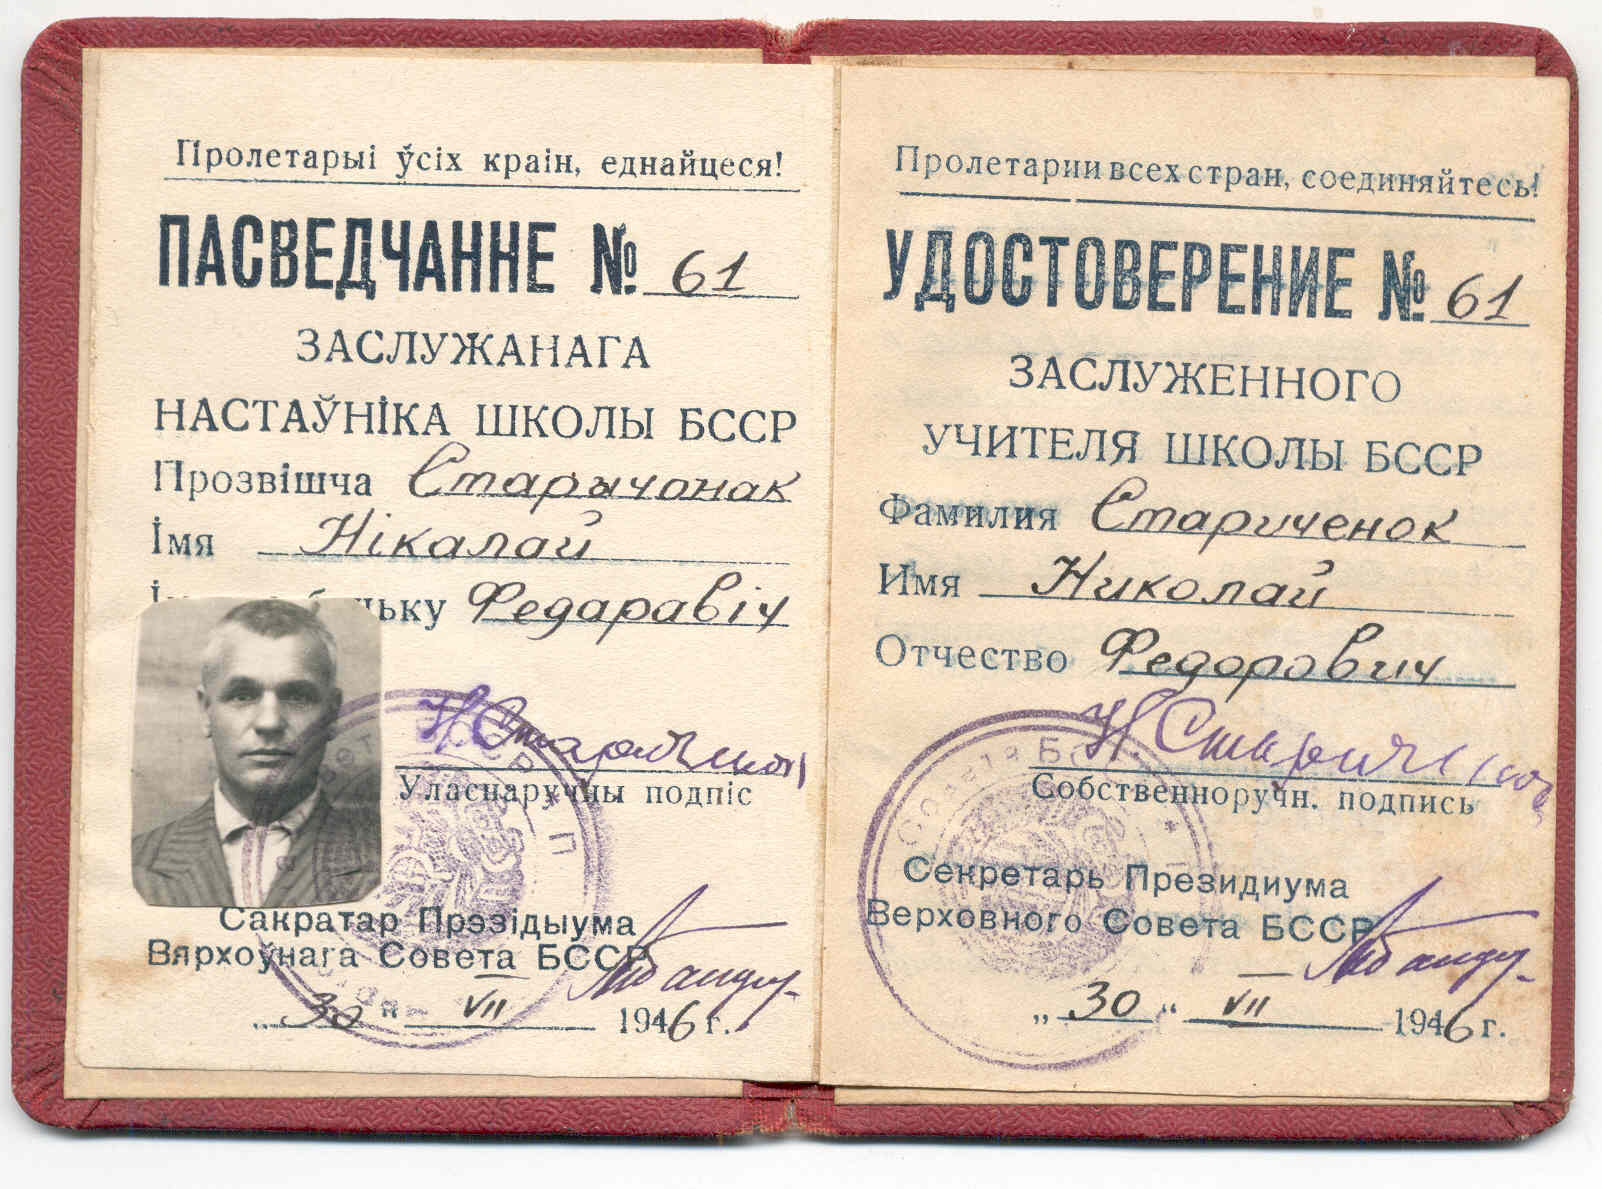 Пролетарыі ўсіх краін, еднайцеся!
ПАСВЕДЧАННЕ № 61
ЗАСЛУЖАНАГА
НАСТАЎНІКА ШКОЛЫ БССР
Прозвішча Старычонак
Імя Нікалай
Федаравіч
Уласнаручны подпіс
Сакратар Прэзідыума
Вярхоўнага Совета БССР
„30" VII 1946 г.
Пролетарии всех стран, соединяйтесь!
УДОСТОВЕРЕНИЕ № 61
ЗАСЛУЖЕННОГО
УЧИТЕЛЯ ШКОЛЫ БССР
Фамилия Стариченок
Имя Николай
Отчество Федорович
Собственноручн. подпись
Секретарь Президиума
Верховного Совета БССР
„30" VII 1946 г.